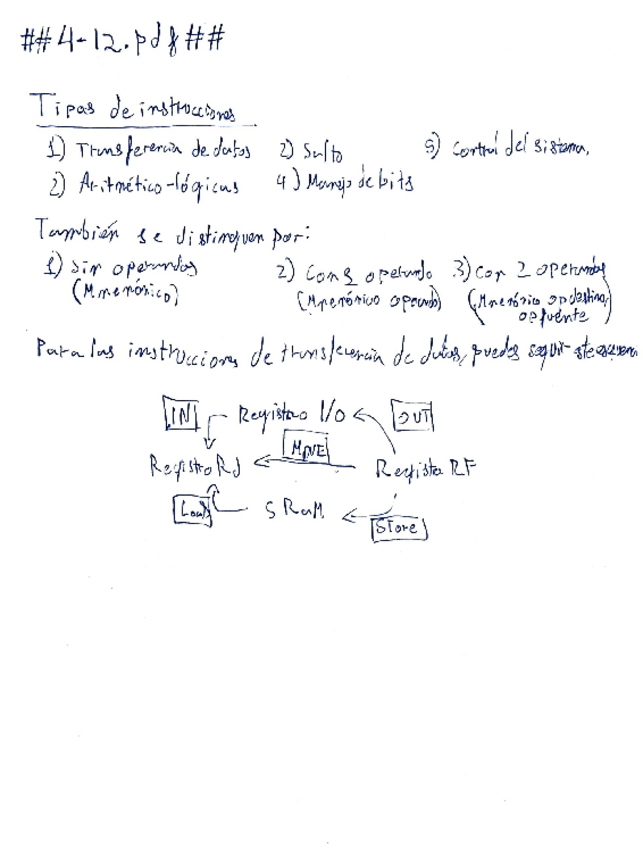 ##4-12.pdf##
Tipos de instrucciones
1) Transferencia de datos 2) Salto 5) Control del sistema,
2) Aritmético-lógicas 4) Manejo de bits
También se distinguen por:
1) sin operandos 2) Con 1 operando 3) Con 2 operandos
(Mnemónico) (Mnemónico operando) (Mnemónico op destino,
op fuente)
Para las instrucciones de transferencia de datos, puedes seguir este esquema
IN Registro I/O OUT
MOVE
Registro Rd Registro RF
Load SRaM Store